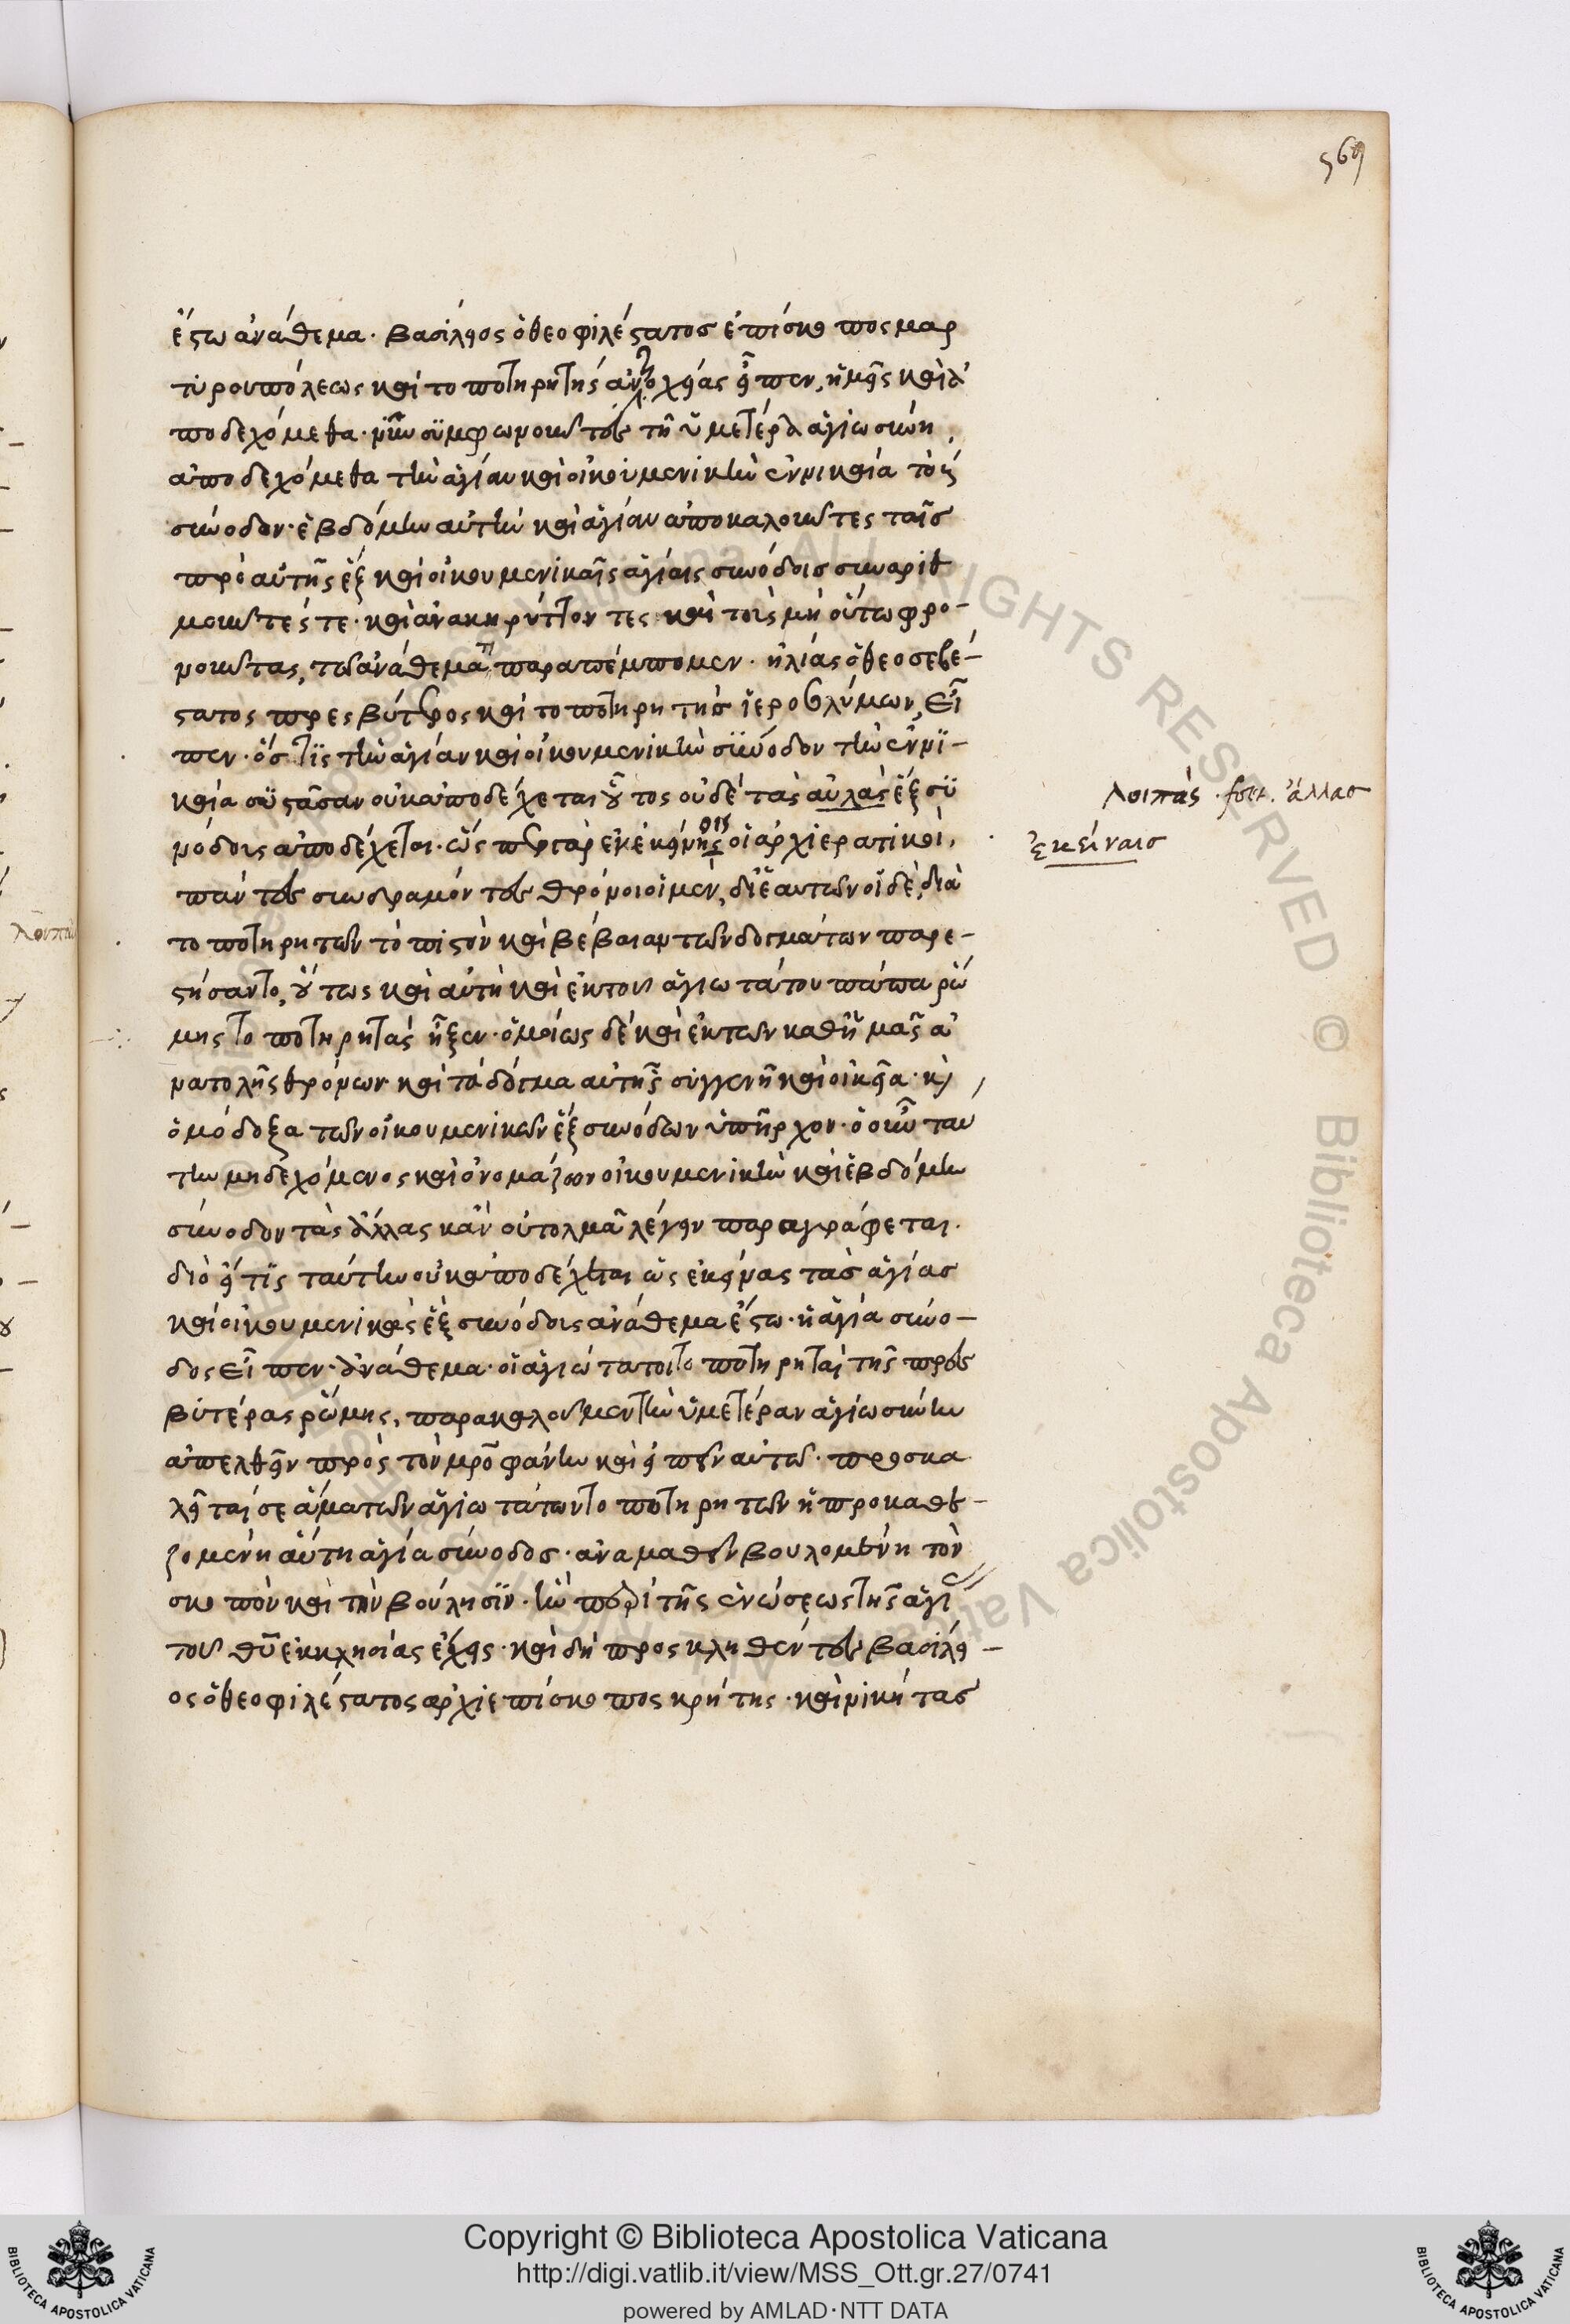 569
ἔστω ἀνάθεμα· Βασίλειος ὁ θεοφιλέστατος ἐπίσκοπος μαρ
τυρουπόλεως καὶ τοποτηρητὴς ἀνατολῆς εἶπεν, ἡμεῖς καὶ ἀ
ποδεχόμεθα· νῦν συμφωνοῦντες τῇ ὑμετέρᾳ ἁγιωσύνῃ,
ἀποδεχόμεθα τὴν ἁγίαν καὶ οἰκουμενικὴν ἐν νικαίᾳ τὸ ζ
σύνοδον· ἑβδόμην αὐτὴν καὶ ἁγίαν ἀποκαλοῦντες ταῖς
πρὸ αὐτῆς ἓξ καὶ οἰκουμενικαῖς ἁγίαις συνόδοις συναριθ
μοῦντές τε· καὶ ἀνακηρύττοντες καὶ τοὺς μὴ οὕτω φρο-
νοῦντας, τῷ ἀνάθεματι παραπέμπομεν· ἠλίας ὁ θεοσεβέ-
στατος πρεσβύτερος καὶ τοποτηρητὴς ἱεροσολύμων, εἶ
πεν· ὅστις τὴν ἁγίαν καὶ οἰκουμενικὴν σύνοδον τὴν ἐν νι-
καίᾳ συστᾶσαν οὐκ ἀποδέχεται οὗτος οὐδὲ τὰς αὐλὰς ἓξ συ
νόδους ἀποδέχεται· ὥσπερ γὰρ ἐν ἐκείνης οἱ ἀρχιερατικοὶ,
πάντες συνδραμόντες θρόνοι οἱ μὲν, δι' ἑαυτῶν οἱ δὲ, διὰ
τοποτηρητῶν τὸ πιστὸν καὶ βέβαιαν τῶν δογμάτων παρε-
στήσαντο, οὕτως καὶ αὐτὴ καὶ ἐκ τοῦ ἁγιωτάτου πάπα ῥώ
μης τοποτηρητὰς ἧξεν· ὁμοίως δὲ καὶ ἐκ τῶν καθ' ἡμᾶς ἀ
νατολῆς θρόνων καὶ τὰ δόγμα αὐτῆς συγγενῆ καὶ οἰκεῖα· κ
ὁμόδοξα τῶν οἰκουμενικῶν ἓξ συνόδων ὑπῆρχον· ὁ οὖν ταύ
την μὴ δεχόμενος καὶ ὀνομάζων οἰκουμενικὴν καὶ ἑβδόμην
σύνοδον τὰς ἄλλας κἂν οὐ τολμᾷ λέγειν παραγράφεται·
διὸ εἴ τις ταύτην οὐκ ἀποδέχεται ὡς ἐκείνας τὰς ἁγίας
καὶ οἰκουμενικὰς ἓξ συνόδους ἀνάθεμα ἔστω· ἡ ἁγία σύνο-
δος εἶπεν· ἀνάθεμα· οἱ ἁγιώτατοι τοποτηρηταὶ τῆς πρες
βυτέρας ῥώμης, παρακαλοῦμεν τὴν ὑμετέραν ἁγιωσύνην
ἀπελθεῖν πρὸς τὸν μροφάνην καὶ εἰπεῖν αὐτῷ· προσκα
λεῖταί σε ἅμα τῶν ἁγιωτάτων τοποτηρητῶν ἡ προκαθε-
ζομένη αὕτη ἁγία σύνοδος· ἀναμαθεῖν βουλομένη τὸν
σκοπὸν καὶ τὴν βούλησιν· ἣν περὶ τῆς ἑνώσεως τῆς ἁγί
τοῦ θῦ ἐκκλησίας ἔχεις· καὶ δὴ προσκληθέντες βασίλει-
ος ὁ θεοφιλέστατος ἀρχιεπίσκοπος κρήτης· καὶ νικήτας
λοιπάς. fort. ἄλλασ
ἐκείναισ
Copyright © Biblioteca Apostolica Vaticana
http://digi.vatlib.it/view/MSS_Ott.gr.27/0741
powered by AMLAD·NTT DATA